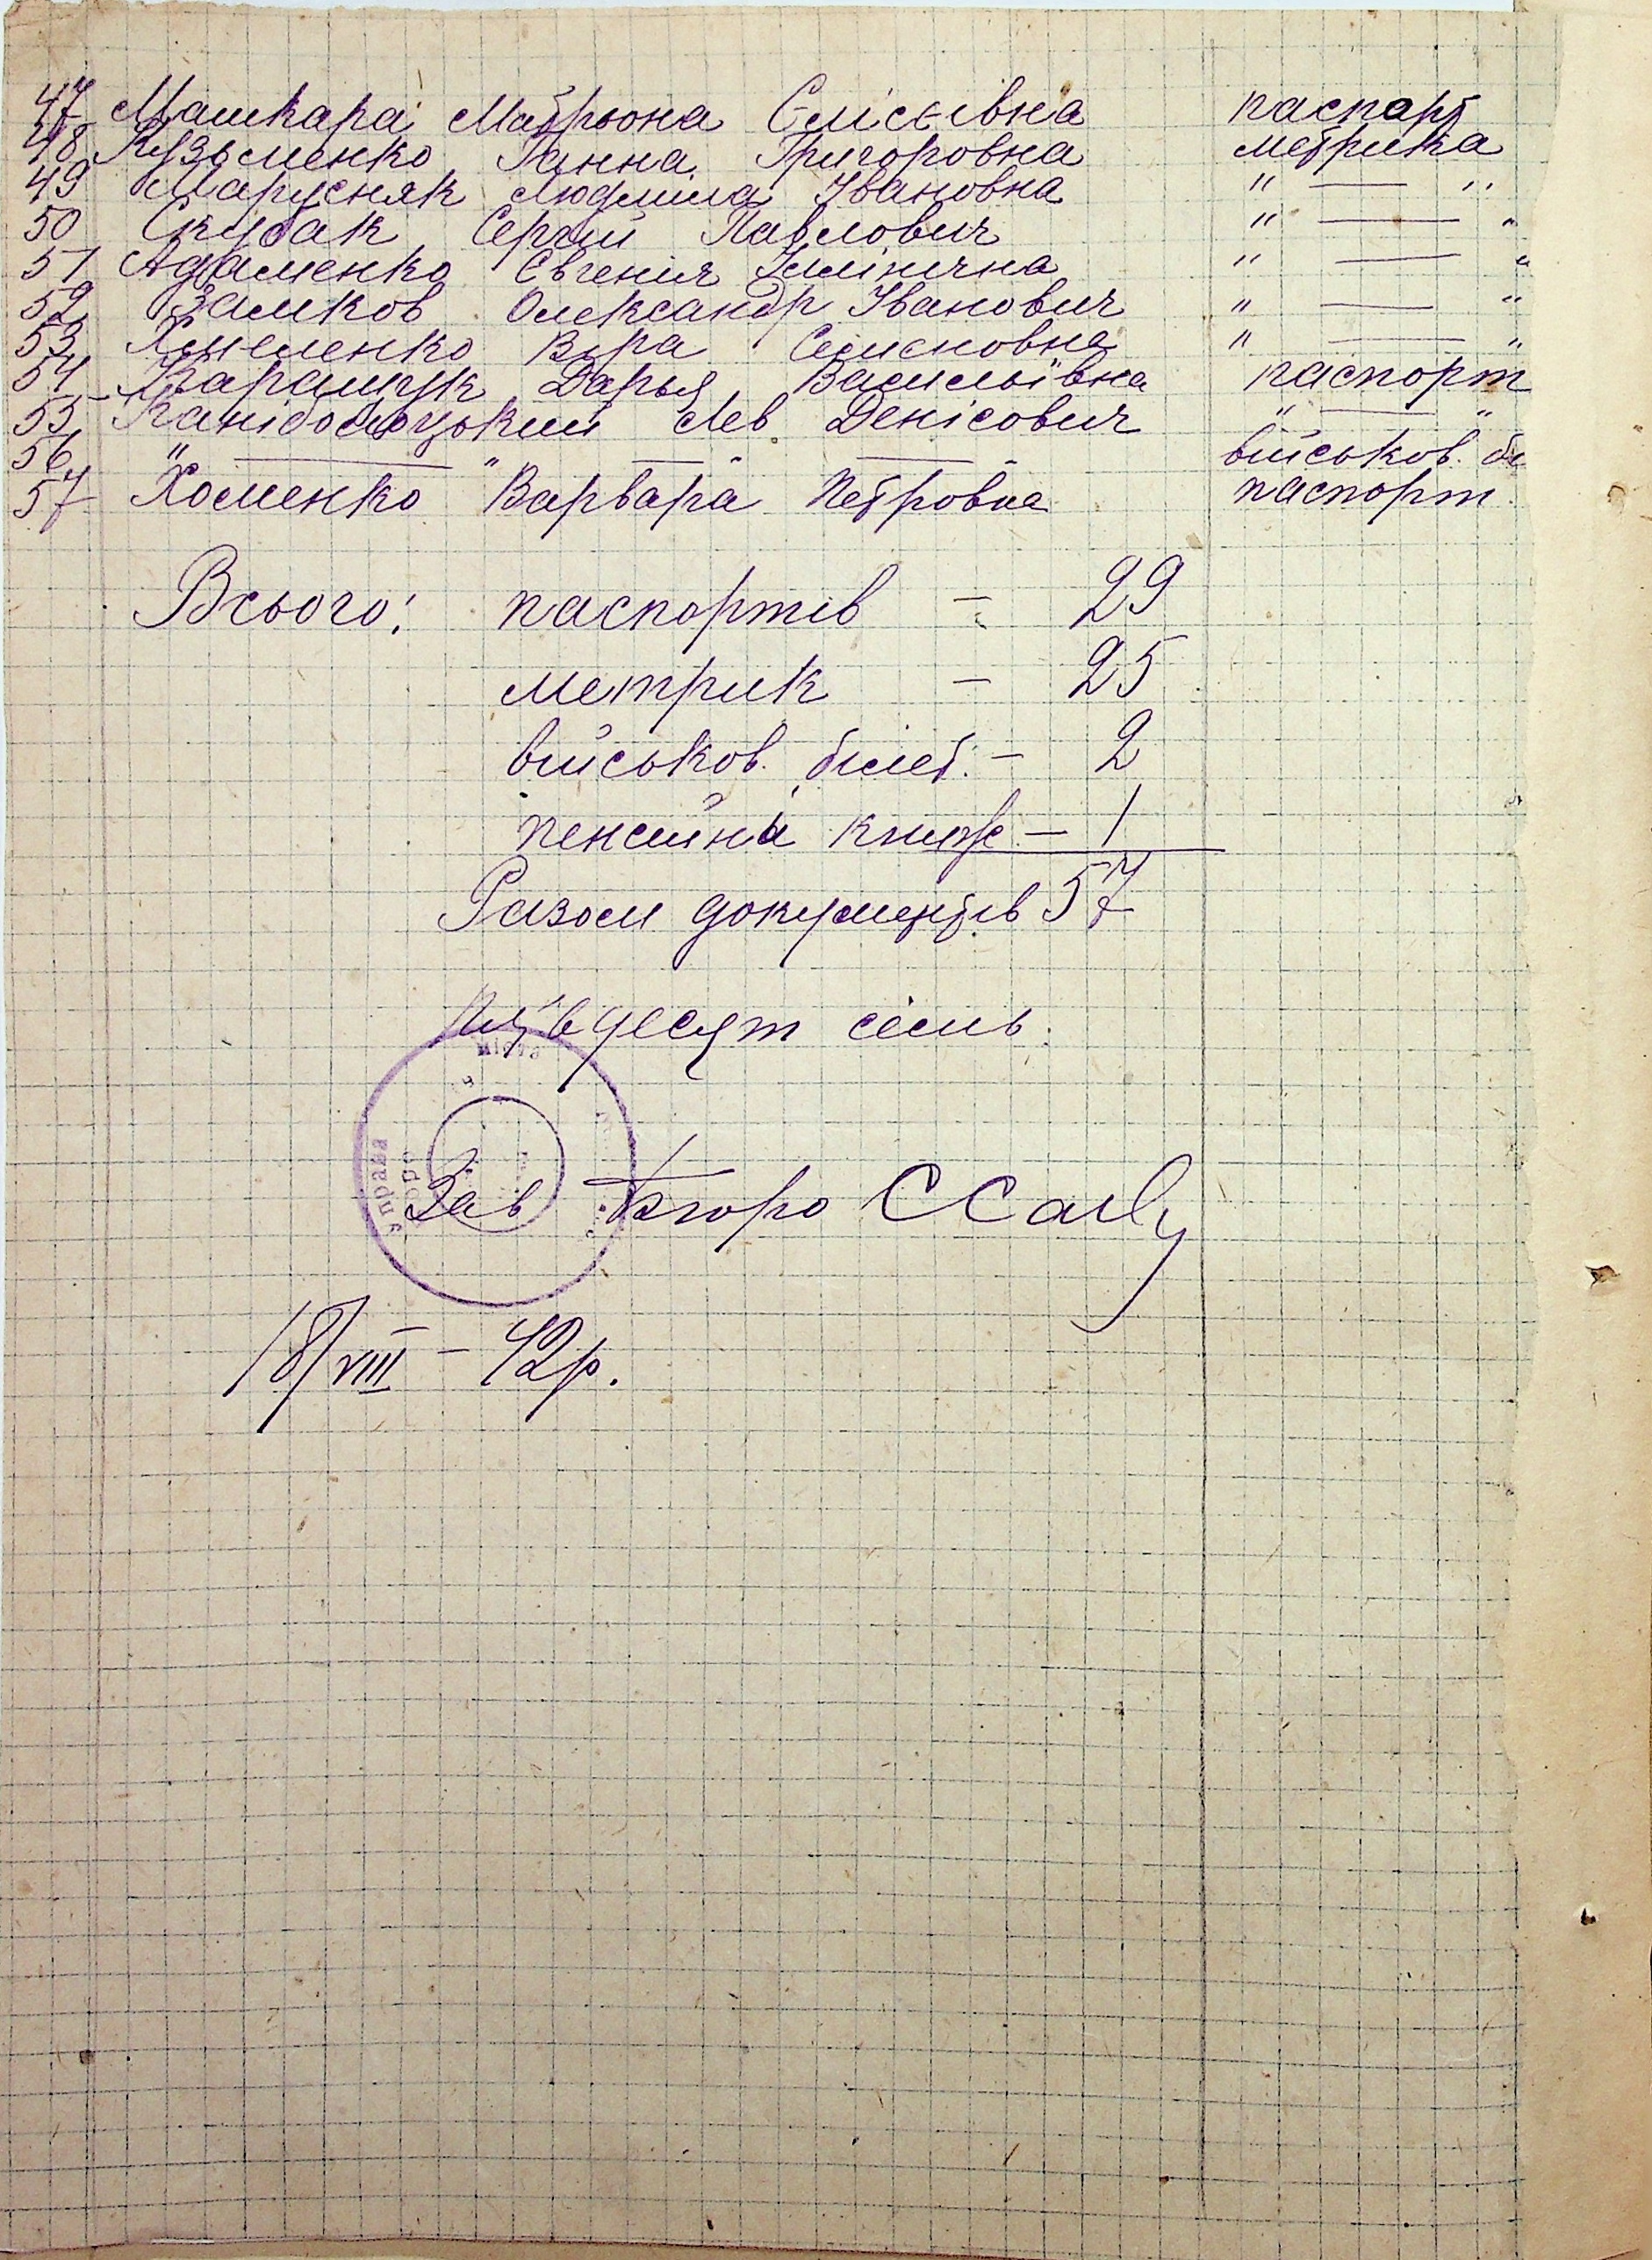 47 Машкара Мотрьона Єлісєівна паспорт
48 Кузьменко Ганна Григоровна метрика
49 Марусняк Людмила Івановна " — "
50 Скубак Сергій Павлович " — "
51 Адаменко Євгенія Іллінічна " — "
52 Замков Олександр Іванович " — "
53 Хименко Віра Семеновна " — "
54 Карамчук Дарья Васильівна паспорт
55 Лев Денісович " — "
56 " — " — " — " військов. бі
57 Хоменко Варвара Петровна паспорт
Всього: паспортів – 29
метрик – 25
військов. білет. – 2
пенсійна книж – 1
Разом документів 57
Пъятдесят сімь.
міста
Управа
Зав Бюро
18/VIII – 42р.